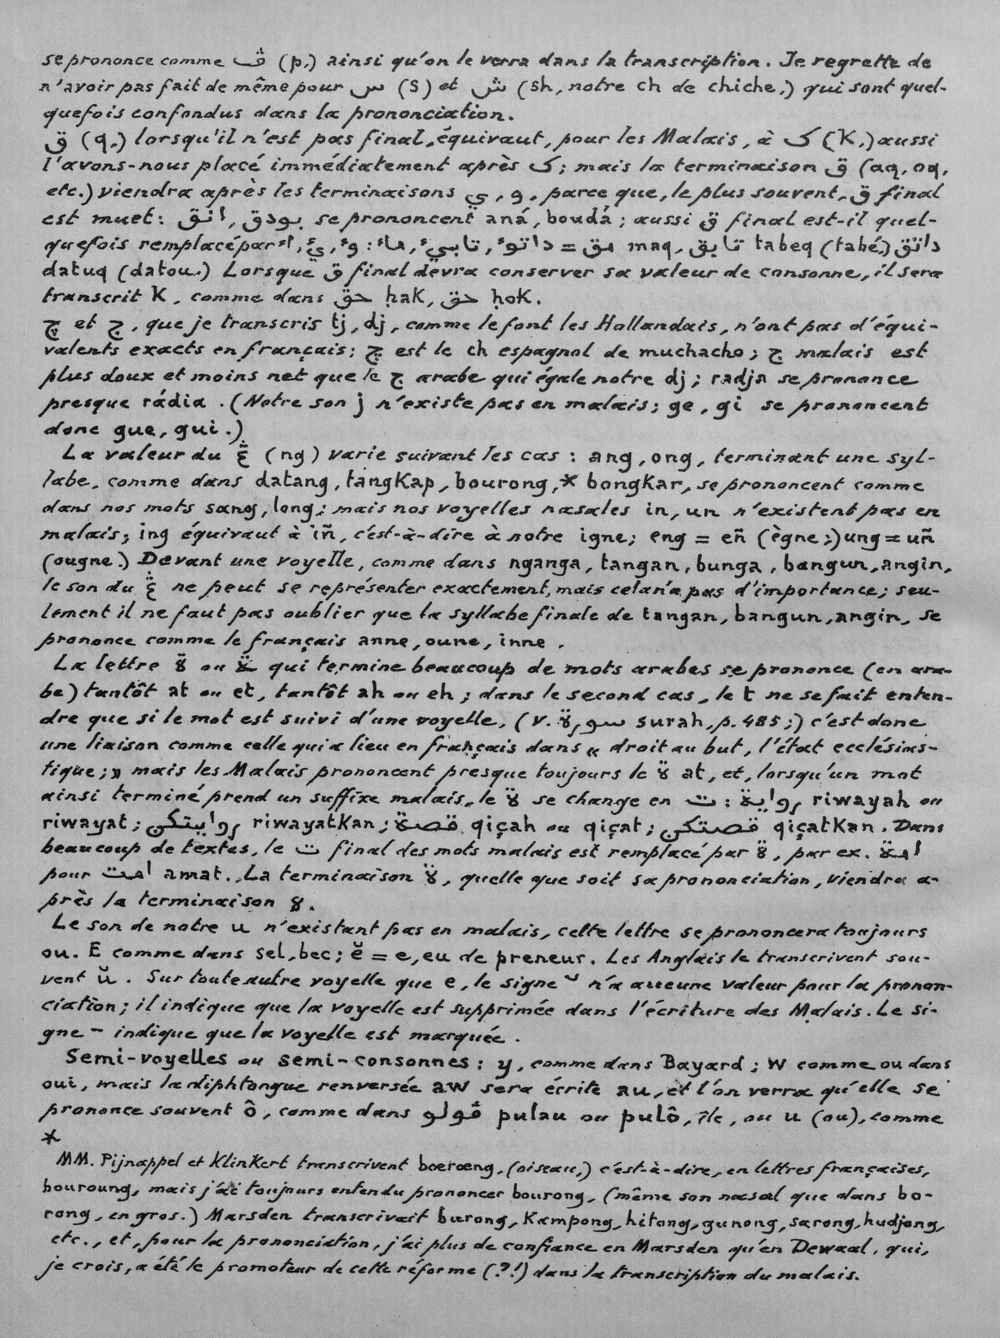 se prononce comme ڤ (p,) ainsi qu'on le verra dans la transcription. Je regrette de
n'avoir pas fait de même pour س (S) et ش (sh, notre ch de chiche,) qui sont quel-
quefois confondus dans la prononciation.
ق (q,) lorsqu'il n'est pas final, équivaut, pour les Malais, à ک (K,) aussi
l'avons-nous placé immédiatement après ک; mais la terminaison ق (aq, oq,
etc.) viendra après les terminaisons و, ي, parce que, le plus souvent, ق final
est muet: انق, بودق se prononcent aná, boudá; aussi ق final est-il quel-
quefois remplacé par أ, ئ, ؤ: ماء, تابيء, داتوء = مق maq, تابق tabeq (tabé,) داتق
datuq (datou.) Lorsque ق final devra conserver sa valeur de consonne, il sera
transcrit K, comme dans حق ḥaK, حق ḥoK.
چ et ج, que je transcris tj, dj, comme le font les Hollandais, n'ont pas d'équi-
valents exacts en français; چ est le ch espagnol de muchacho; ج malais est
plus doux et moins net que le ج arabe qui égale notre dj; radja se prononce
presque rádia. (Notre son j n'existe pas en malais; ge, gi se prononcent
donc gue, gui.)
La valeur du ڠ (ng) varie suivant les cas: ang, ong, terminant une syl-
labe, comme dans datang, tangKap, bourong, * bongKar, se prononcent comme
dans nos mots sang, long; mais nos voyelles nasales in, un n'existent pas en
malais; ing équivaut à iñ, c'est-à-dire à notre igne; eng = eñ (ègne;) ung = uñ
(ougne.) Devant une voyelle, comme dans nganga, tangan, bunga, bangun, angin,
le son du ڠ ne peut se représenter exactement, mais cela n'a pas d'importance; seu-
lement il ne faut pas oublier que la syllabe finale de tangan, bangun, angin, se
prononce comme le français anne, oune, inne.
La lettre ة ou ـة qui termine beaucoup de mots arabes se prononce (en ara-
be) tantôt at ou et, tantôt ah ou eh; dans le second cas, le t ne se fait enten-
dre que si le mot est suivi d'une voyelle, (v. سورة surah, p. 485;) c'est donc
une liaison comme celle qui a lieu en français dans « droit au but, l'état ecclésias-
tique; » mais les Malais prononcent presque toujours le ة at, et, lorsqu'un mot
ainsi terminé prend un suffixe malais, le ة se change en ت: رواية riwayah ou
riwayat; روايتکن riwayatKan; قصة qiçah ou qiçat; قصتکن qiçatKan. Dans
beaucoup de textes, le ت final des mots malais est remplacé par ة, par ex. امة
pour امت amat. La terminaison ة, quelle que soit sa prononciation, viendra a-
près la terminaison ه.
Le son de notre u n'existant pas en malais, cette lettre se prononcera toujours
ou. E comme dans sel, bec; ĕ = e, eu de preneur. Les Anglais le transcrivent sou-
vent ŭ. Sur toute autre voyelle que e, le signe ˘ n'a aucune valeur pour la pronon-
ciation; il indique que la voyelle est supprimée dans l'écriture des Malais. Le si-
gne ¯ indique que la voyelle est marquée.
Semi-voyelles ou semi-consonnes: y, comme dans Bayard; W comme ou dans
oui, mais la diphtongue renversée aw sera écrite au, et l'on verra qu'elle se
prononce souvent ô, comme dans ڤولو pulau ou pulô, île, ou u (ou), comme
*
MM. Pijnappel et KlinKert transcrivent boeroeng, (oiseau,) c'est-à-dire, en lettres françaises,
bouroung, mais j'ai toujours entendu prononcer bourong, (même son nasal que dans bo-
rong, en gros.) Marsden transcrivait burong, Kampong, hitong, gunong, sarong, hudjong,
etc., et, pour la prononciation, j'ai plus de confiance en Marsden qu'en Dewaal, qui,
je crois, a été le promoteur de cette réforme (?!) dans la transcription du malais.